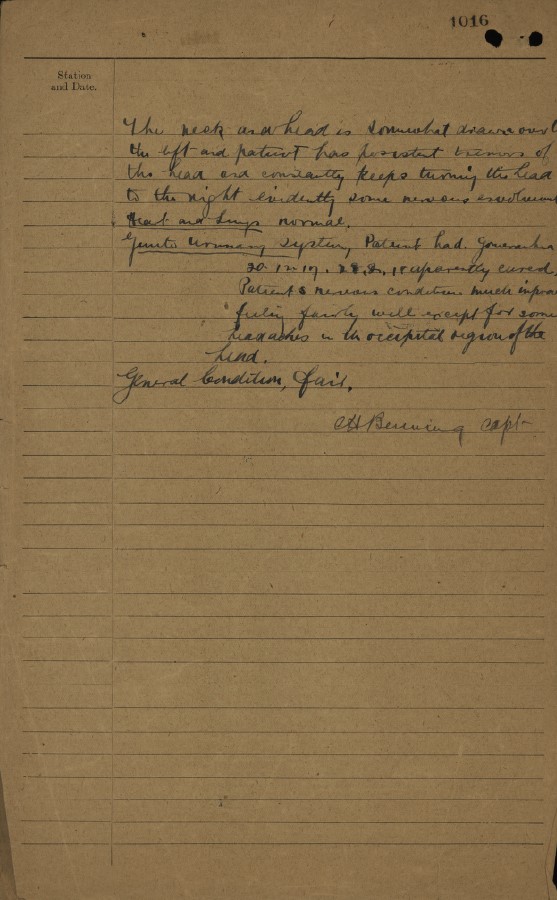 1016
Station
and Date.
The neck and head is somewhat drawn over
the left and patient has persistent tremors of
the head and constantly keeps turning the head
to the right evidently some nervous
Heart and Lungs normal.
Genito Urinary System, Patient had
20.12.17. apparently cured.
Patient's nervous condition much
feeling fairly well except for some
headaches in the occipital region of the
head.
General Condition, fair.
Capt